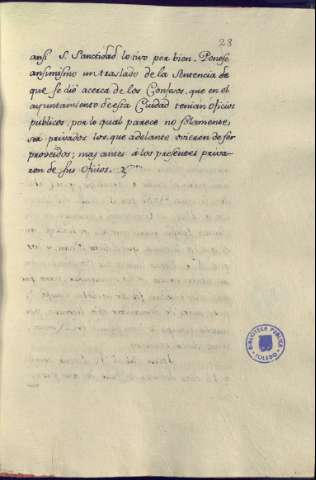 23
ansi S. Sanctidad lo tuvo por bien. Ponese
ansimismo un traslado de la Sentencia de
que se dió acerca de los Confesos, que en el
ayuntamiento de esta Ciudad tenian oficios
publicos, por lo qual parece no solamente,
ser privados los que adelante vbieren de ser
proveidos; mas antes á los presentes priva-
ron de sus oficios.
BIBLIOTECA PUBLICA
TOLEDO